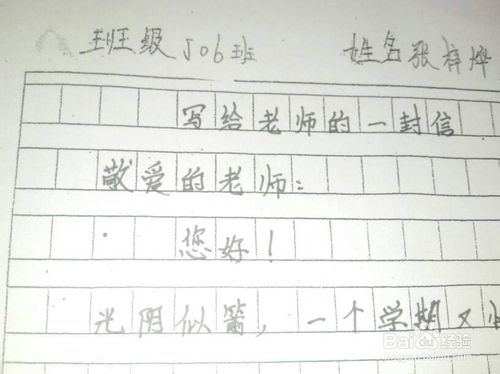 班级 506班 姓名张梓烨
写给老师的一封信
敬爱的老师：
您好！
光阴似箭，一个学期又
Baidu经验